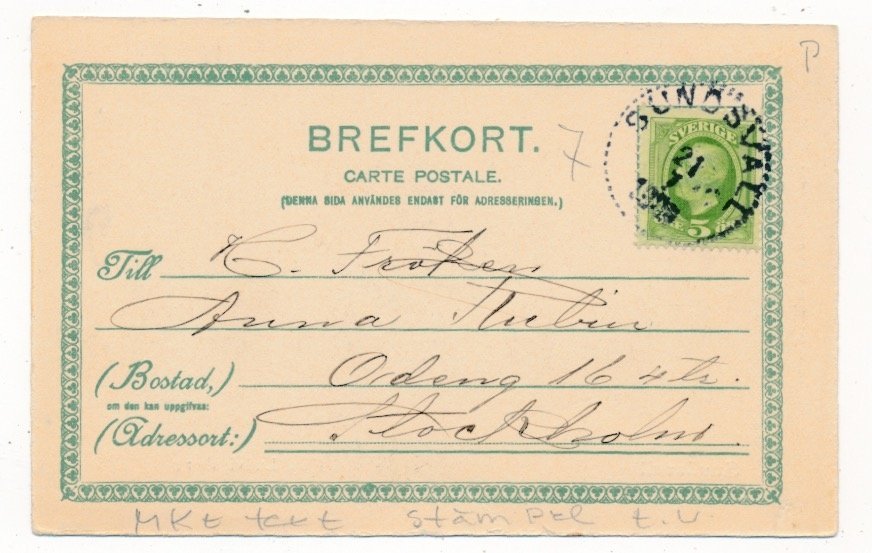 P
BREFKORT. 7
CARTE POSTALE.
(DENNA SIDA ANVÄNDES ENDAST FÖR ADRESSERINGEN.)
SUNDSVALL
21
SVERIGE
5
Till H. Fröken
Anna Rubin
(Bostad,) Odeng 16 4 tr.
om den kan uppgifvas:
(Adressort:) Stockholm.
Mkt text stämpel t.v.